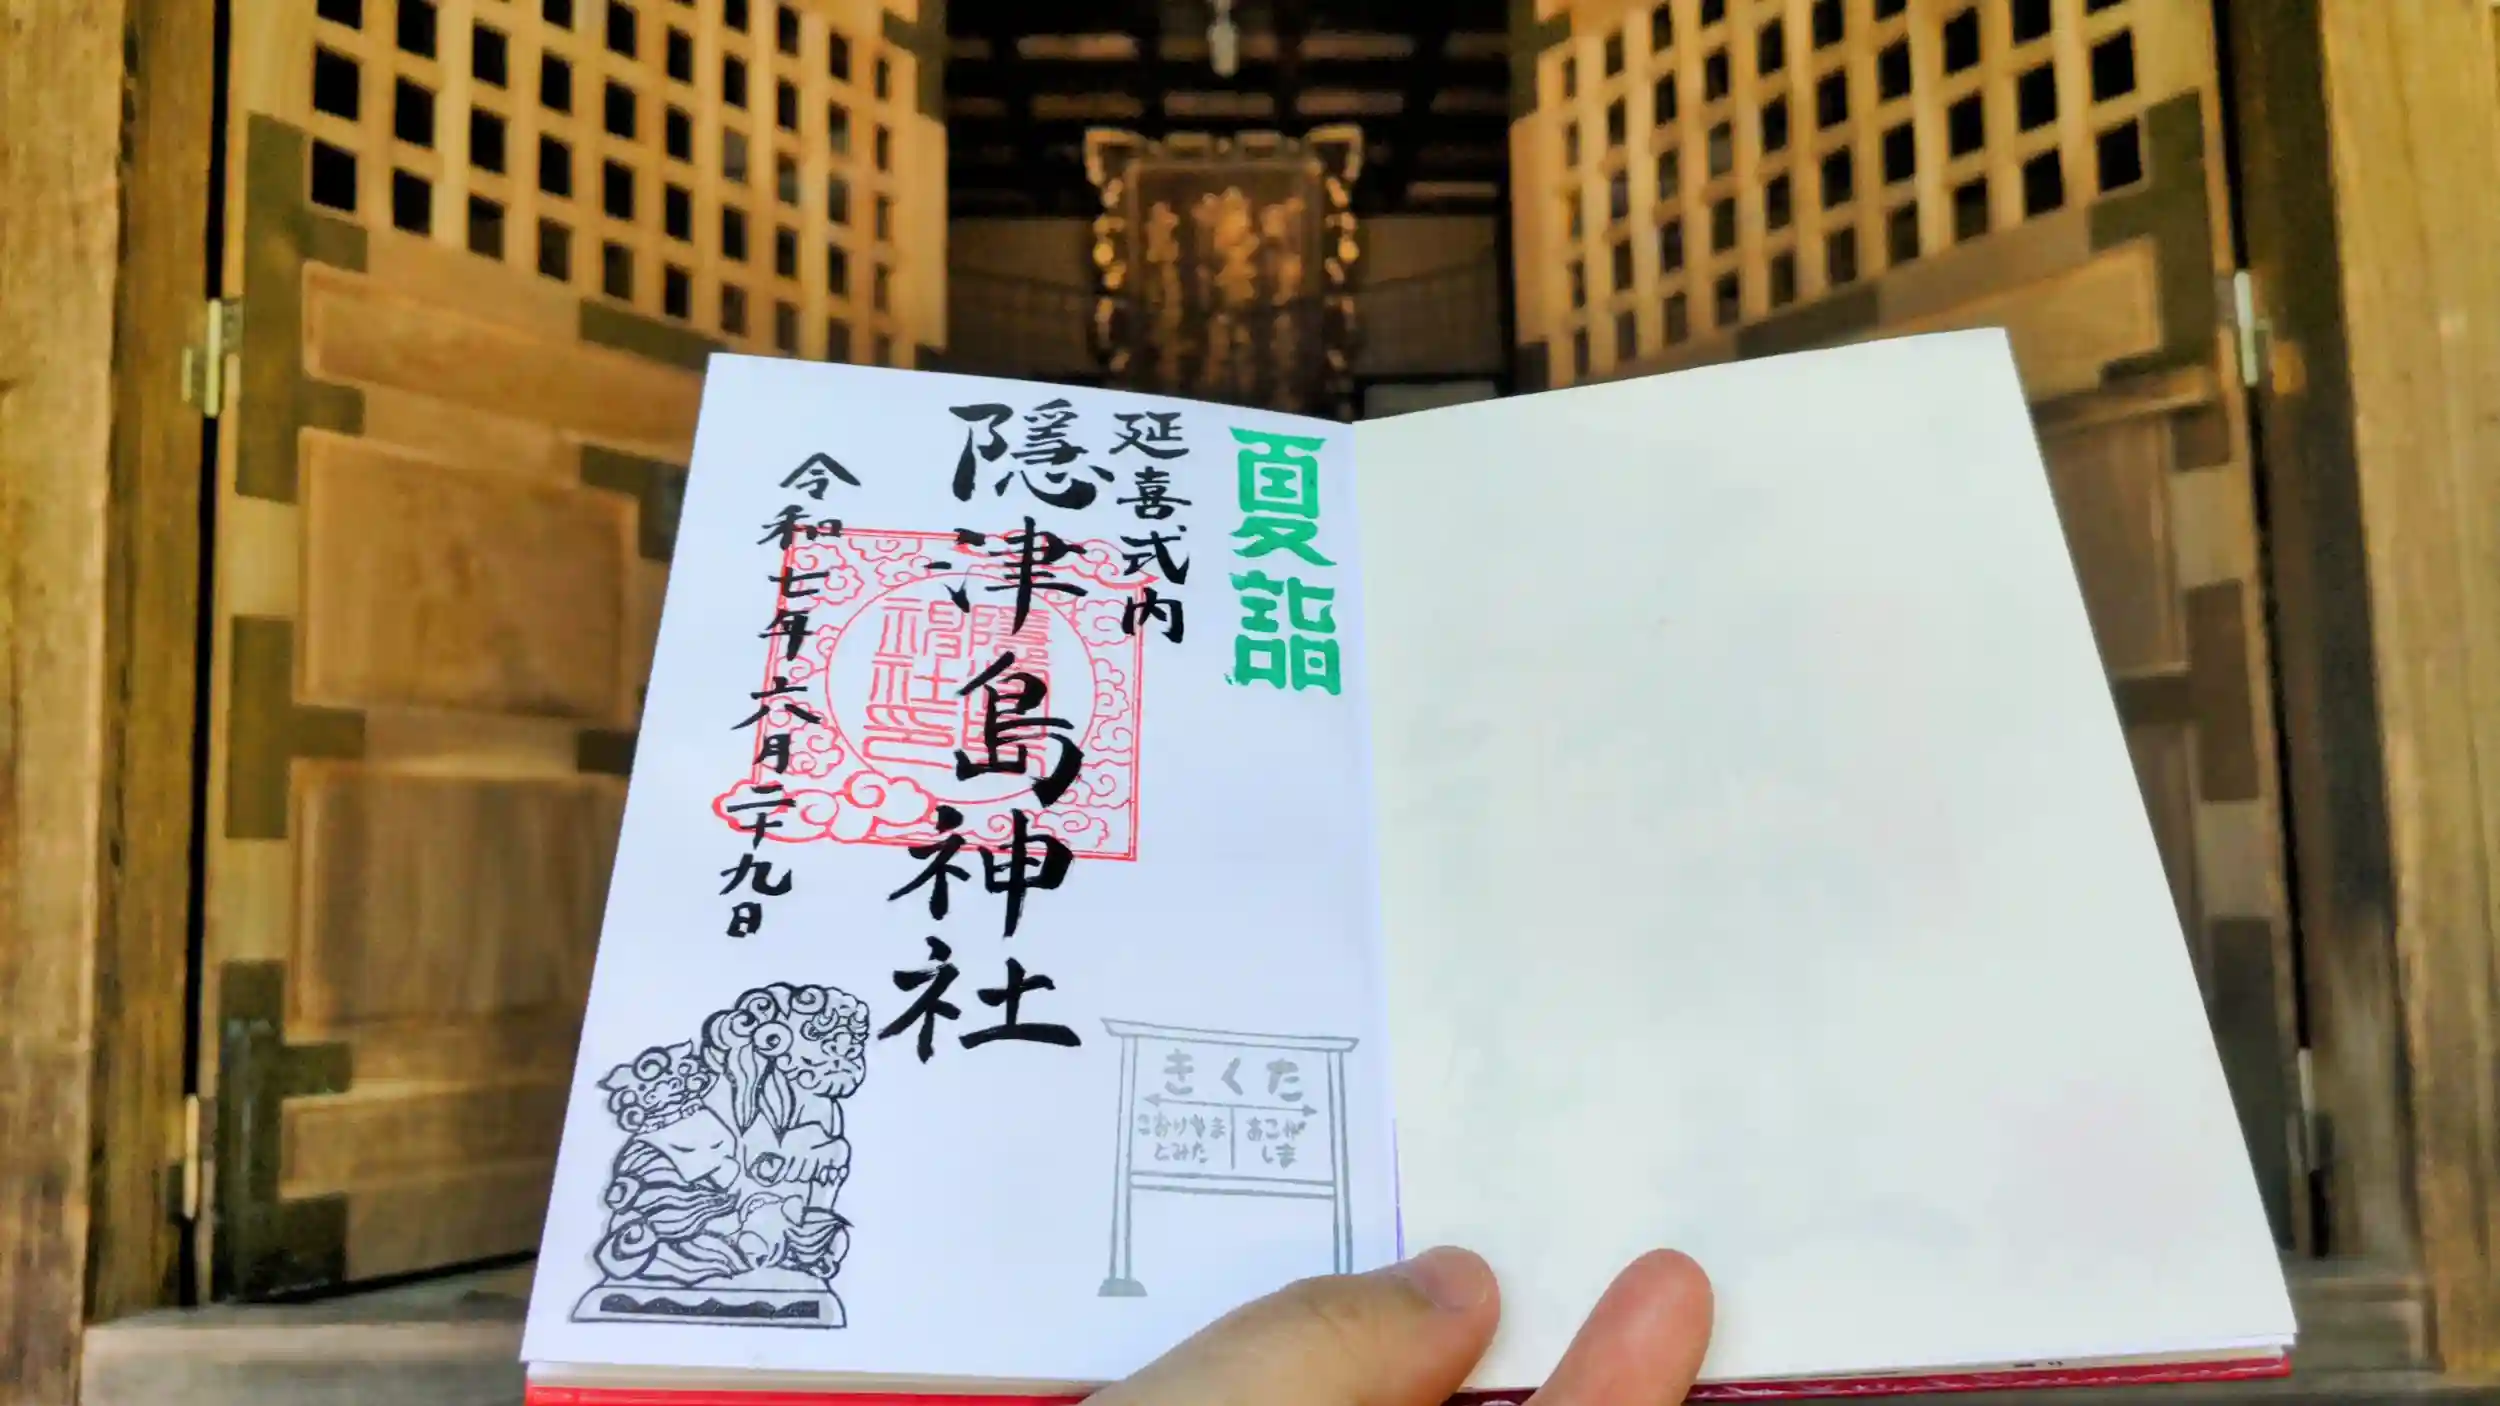 夏詣
延喜式内
隠津島神社
令和七年六月二十九日
きくた
こおりやま
とみた
あこが
しま